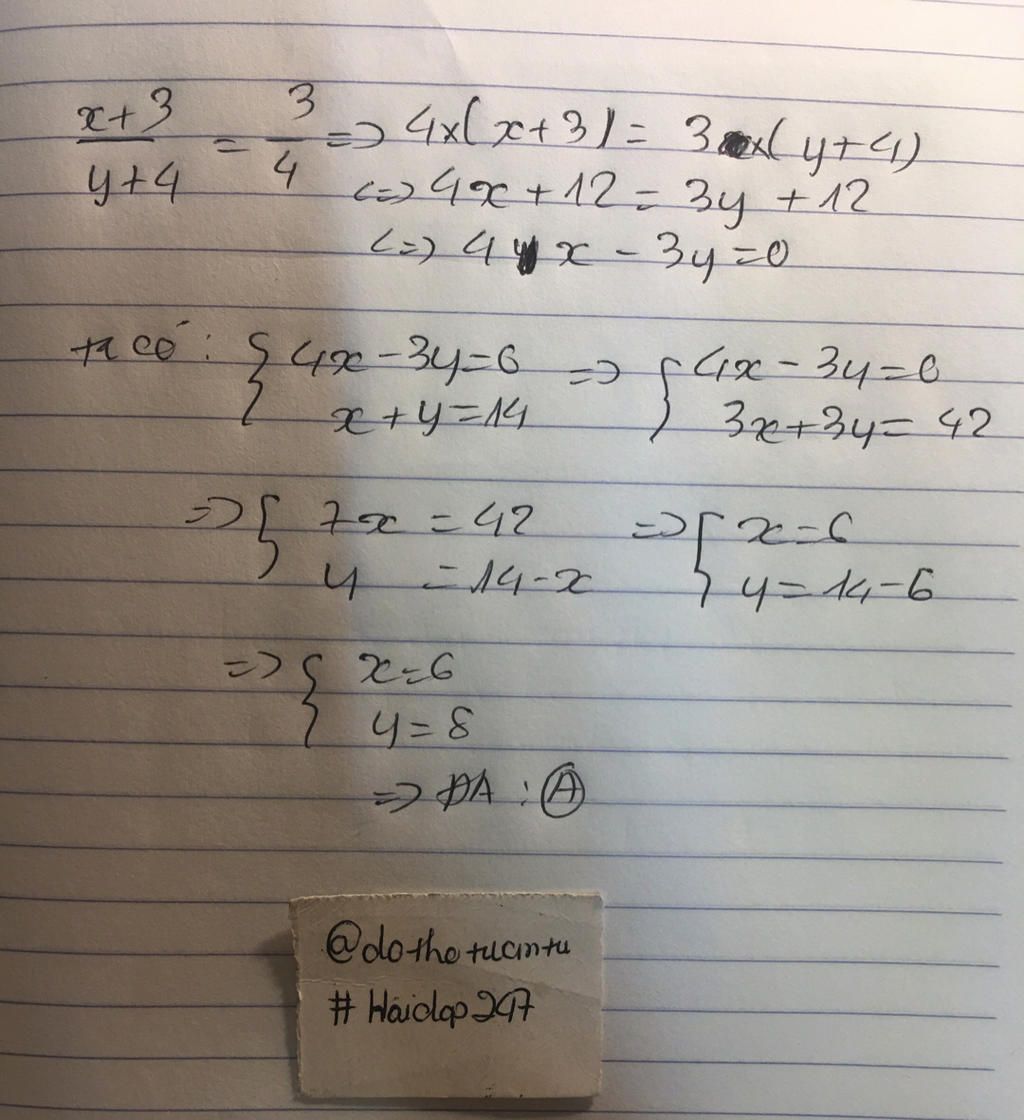 x+3/y+4 = 3/4 => 4×(x+3) = 3×(y+4)
<=> 4x+12 = 3y+12
<=> 4x - 3y = 0
ta có: { 4x-3y=0 => { 4x-3y=0
x+y=14 3x+3y=42
=> { 7x = 42 => { x=6
y = 14-x y=14-6
=> { x=6
y=8
=> ĐA : A
@dothetuantu
# Hoidap247